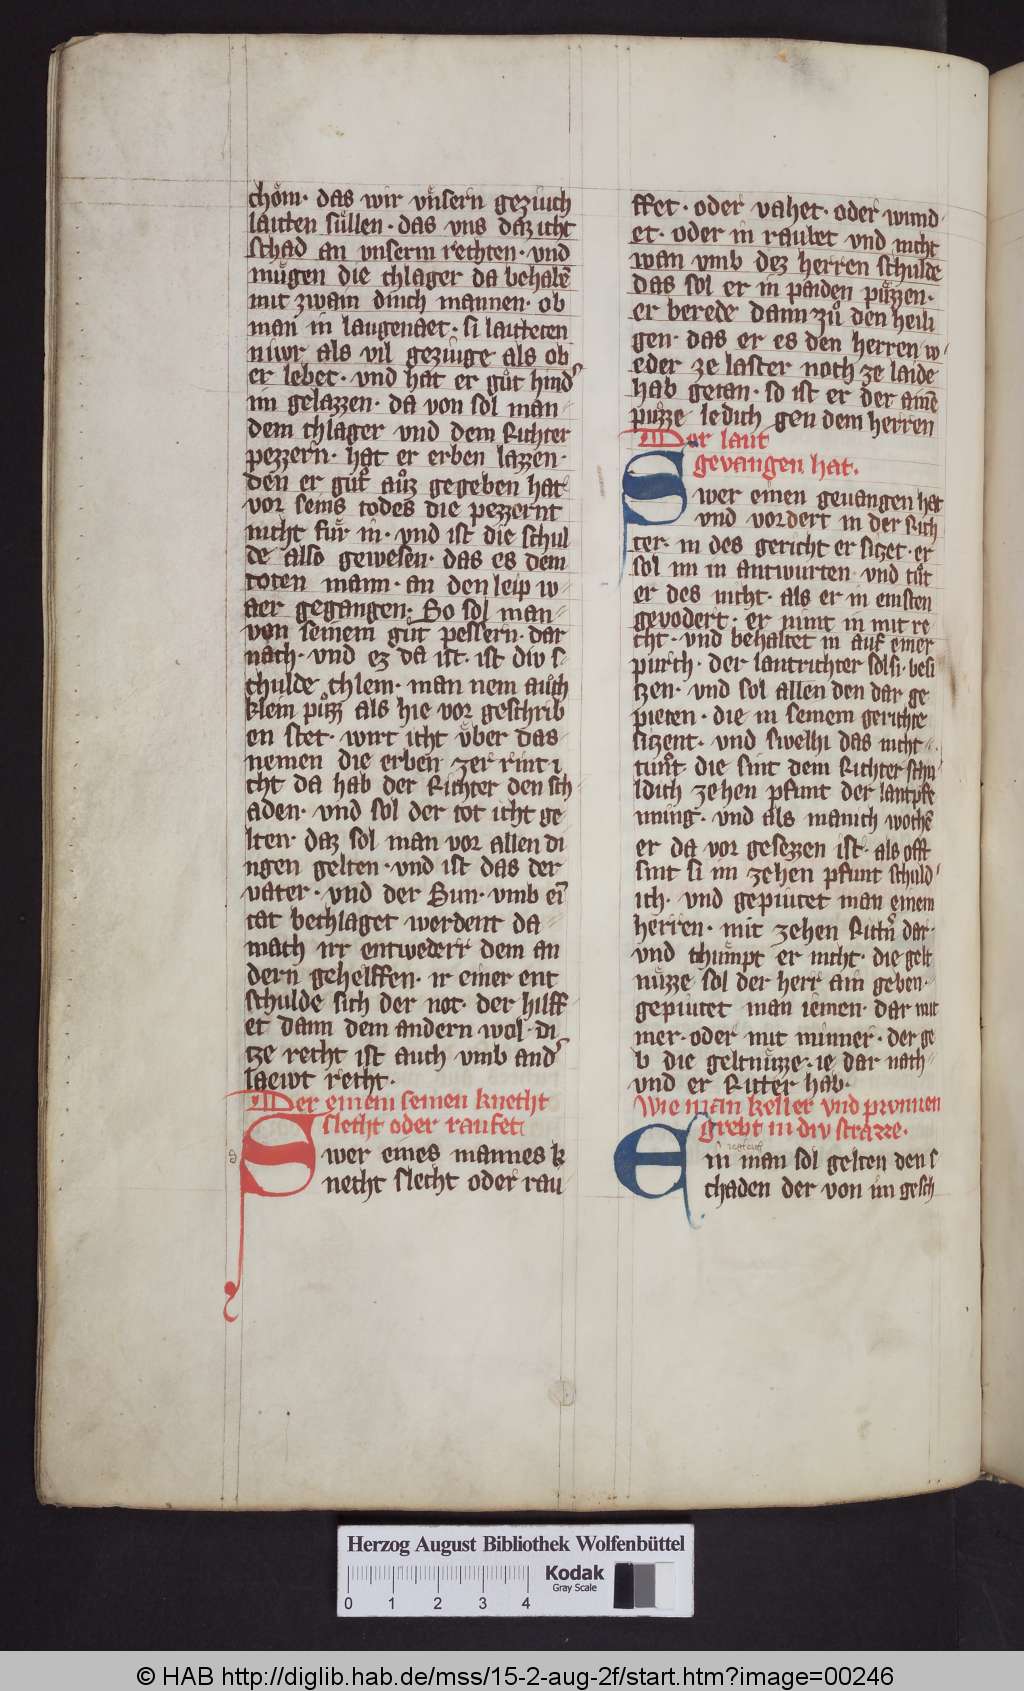 chöm · das wir vnsern geziuch
lauten süllen · das vns daz icht
schad an vnserm rechten · vnd
mügen die chlager da behabē
mit zwain dinch mannen · ob
man in laugenaet · si lauteten
niwr als vil geziuge als ob
er lebet · vnd hat er gůt hind
im gelazzen · da von sol man
dem chlager vnd dem Richter
pezzern · hat er erben lazzen ·
den er gůt auz gegeben hat
vor seins todes die pezzernt
nicht für in · vnd ist die schul
de also gewesen · das es dem
toten mann · an den leip w
aer gegangen · So sol man
von seinem gůt pessern · dar
nach · vnd ez da ist · ist div s
chulde chlem · man nem auch
klein půzz als hie vor geschrib
en stet · wirt icht über das
nemen die erben zer rint i
cht da hab der Richter den sch
aden · vnd sol der tot icht ge
lten · daz sol man vor allen di
ngen gelten · vnd ist das der
vater · vnd der Sun · vmb ein
tat bechlaget werdent da
mach irr entwederr dem an
dern gehelffen · ir einer ent
schulde sich der not · der hilff
et dann dem andern wol · di
tze recht ist auch vmb and
laewt recht ·
Der einem seinen knecht
slecht oder raufet
Swer eines mannes k
necht slecht oder rau
ffet · oder vahet · oder wund
et · oder in raubet vnd nicht
wan vmb dez herren schulde
das sol er in paiden půzzen ·
er berede dann zů den heili
gen · das er es den herren w
eder ze laster noch ze laide
hab getan · so ist er der ainē
půzze ledich gen dem herren
Der laut
gevangen hat ·
Swer einen geuangen hat
vnd vordert in der Rich
ter · in des gericht er sitzet · er
sol im in antwurten · vnd tůt
er des nicht · als er in einsten
gevodert · er nimt in mit re
cht · vnd behaltet in auf einer
purch · der lantrichter sol si · besi
tzen · vnd sol allen den dar ge
pieten · die in seinem gerichte
sitzent · vnd swelhi das nicht
tunt · die sint dem Richter schu
ldich zehen pfunt der lantpfe
nning · vnd als manich wochē
er da vor gesezzen ist · als offt
sint si im zehen pfunt schuld
ich · vnd gepiutet man einem
herren · mit zehen Ritn dar ·
vnd chumpt er nicht · die gelt
nüzze sol der herr ain geben ·
gepiutet man iemen · dar mit
mer · oder mit minner · der ge
b die geltnüzze · ie dar nach
vnd er Ritter hab ·
Wie man keller vnd pronnen
grebt in div strazze ·
Ein man sol gelten den s
chaden der von im gesch
Herzog August Bibliothek Wolfenbüttel
Kodak
Gray Scale
0 1 2 3 4
© HAB http://diglib.hab.de/mss/15-2-aug-2f/start.htm?image=00246